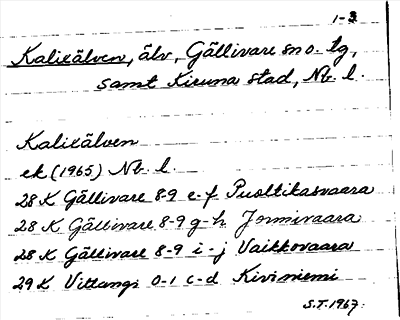 1-3
Kalixälven, älv, Gällivare sno. tg,
samt Kiruna stad, Nb. l.
Kalixälven
ek (1965) Nb. l.
28 K Gällivare 8-9 e-f Puoltikasvaara
28 K Gällivare 8-9 g-h Jormivaara
28 K Gällivare 8-9 i-j Vaikkovaara
29 K Vittangi 0-1 c-d Kiviniemi
S.T. 1967.